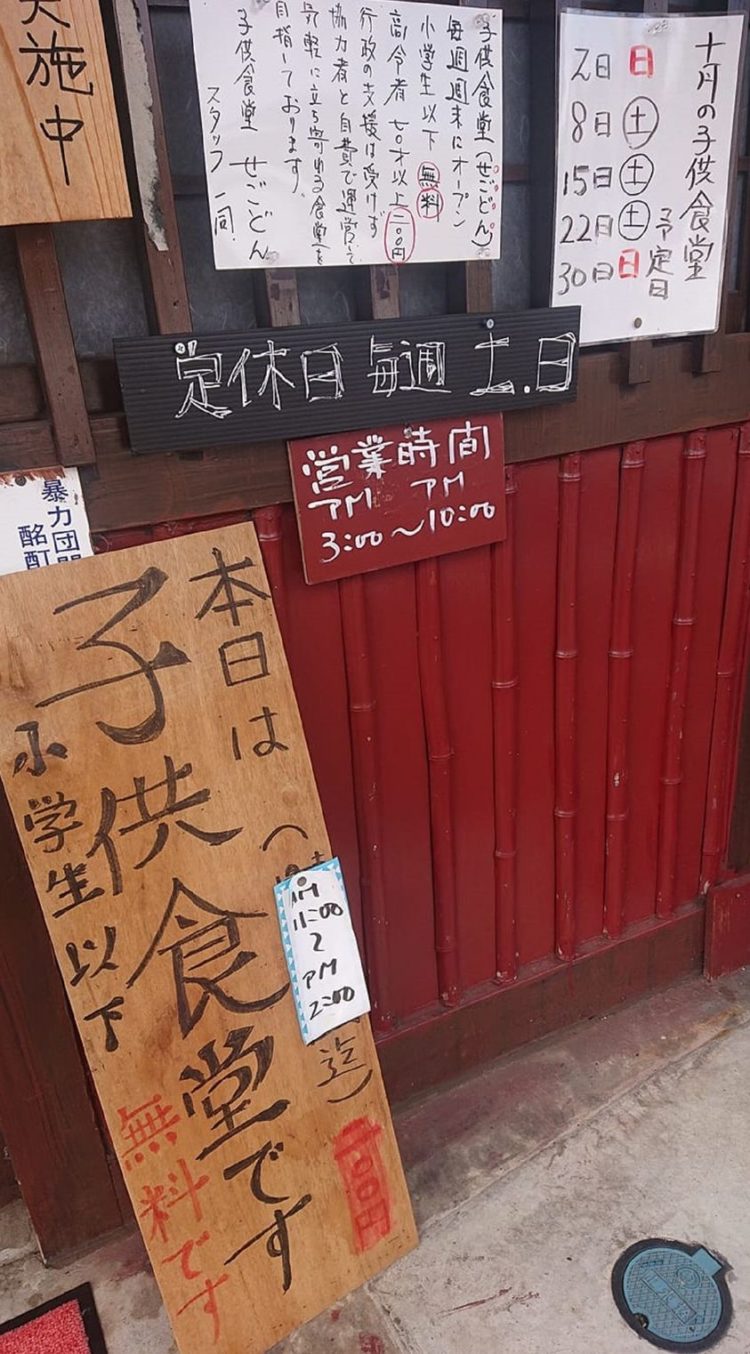 実施中
子供食堂(せごどん)
毎週週末にオープン
小学生以下 無料
高令者 七〇才以上 二〇〇円
行政の支援は受けず
協力者と自費で運営して
気軽に立ち寄れる食堂を
目指しております。
子供食堂 せごどん
スタッフ一同.
十月の子供食堂
予定日
2日 日
8日 土
15日 土
22日 土
30日 日
定休日 毎週 土.日
営業時間
PM PM
3:00〜10:00
暴力団
酩酊
本日は
子供食堂です
小学生以下
無料です
AM
11:00
〜
PM
2:00
迄)